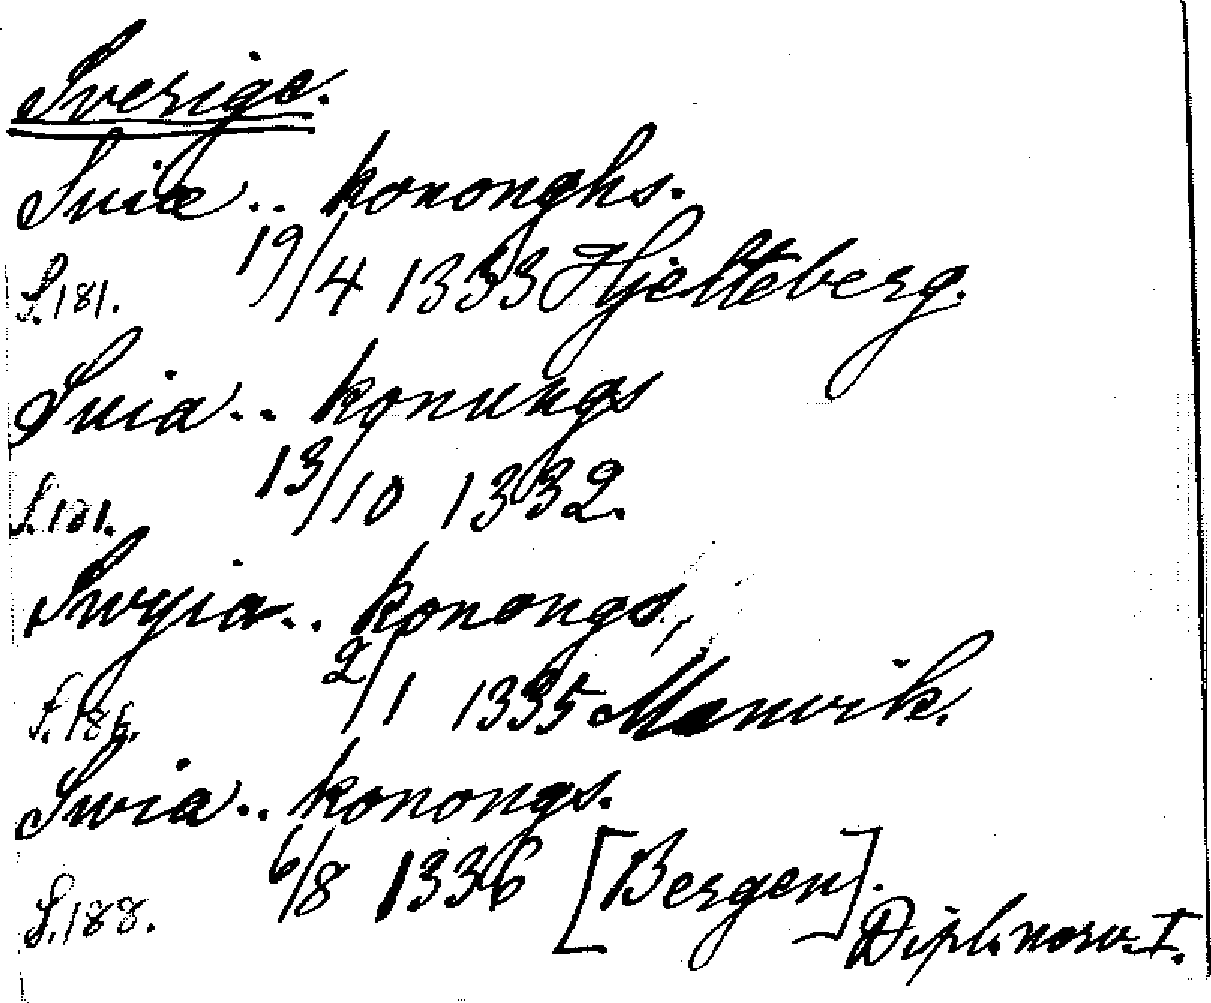 Sverige.
Suiæ .. kononghs.
S.181. 19/4 1333 Hjelteberg.
Suia .. konungs
S.181. 13/10 1332.
Swyia .. konongs,
S.186. 2/1 1335 Manvik.
Swia .. konongs.
S.188. 6/8 1336 [Bergen].
Dipl. norv. I.